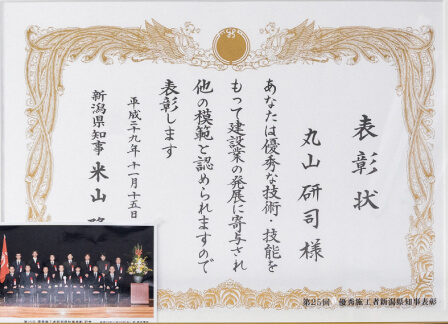 表彰状
丸山研司様
あなたは優秀な技術・技能を
もって建設業の発展に寄与され
他の模範と認められますので
表彰します
平成二十九年十一月十五日
新潟県知事 米山
第25回 優秀施工者新潟県知事表彰